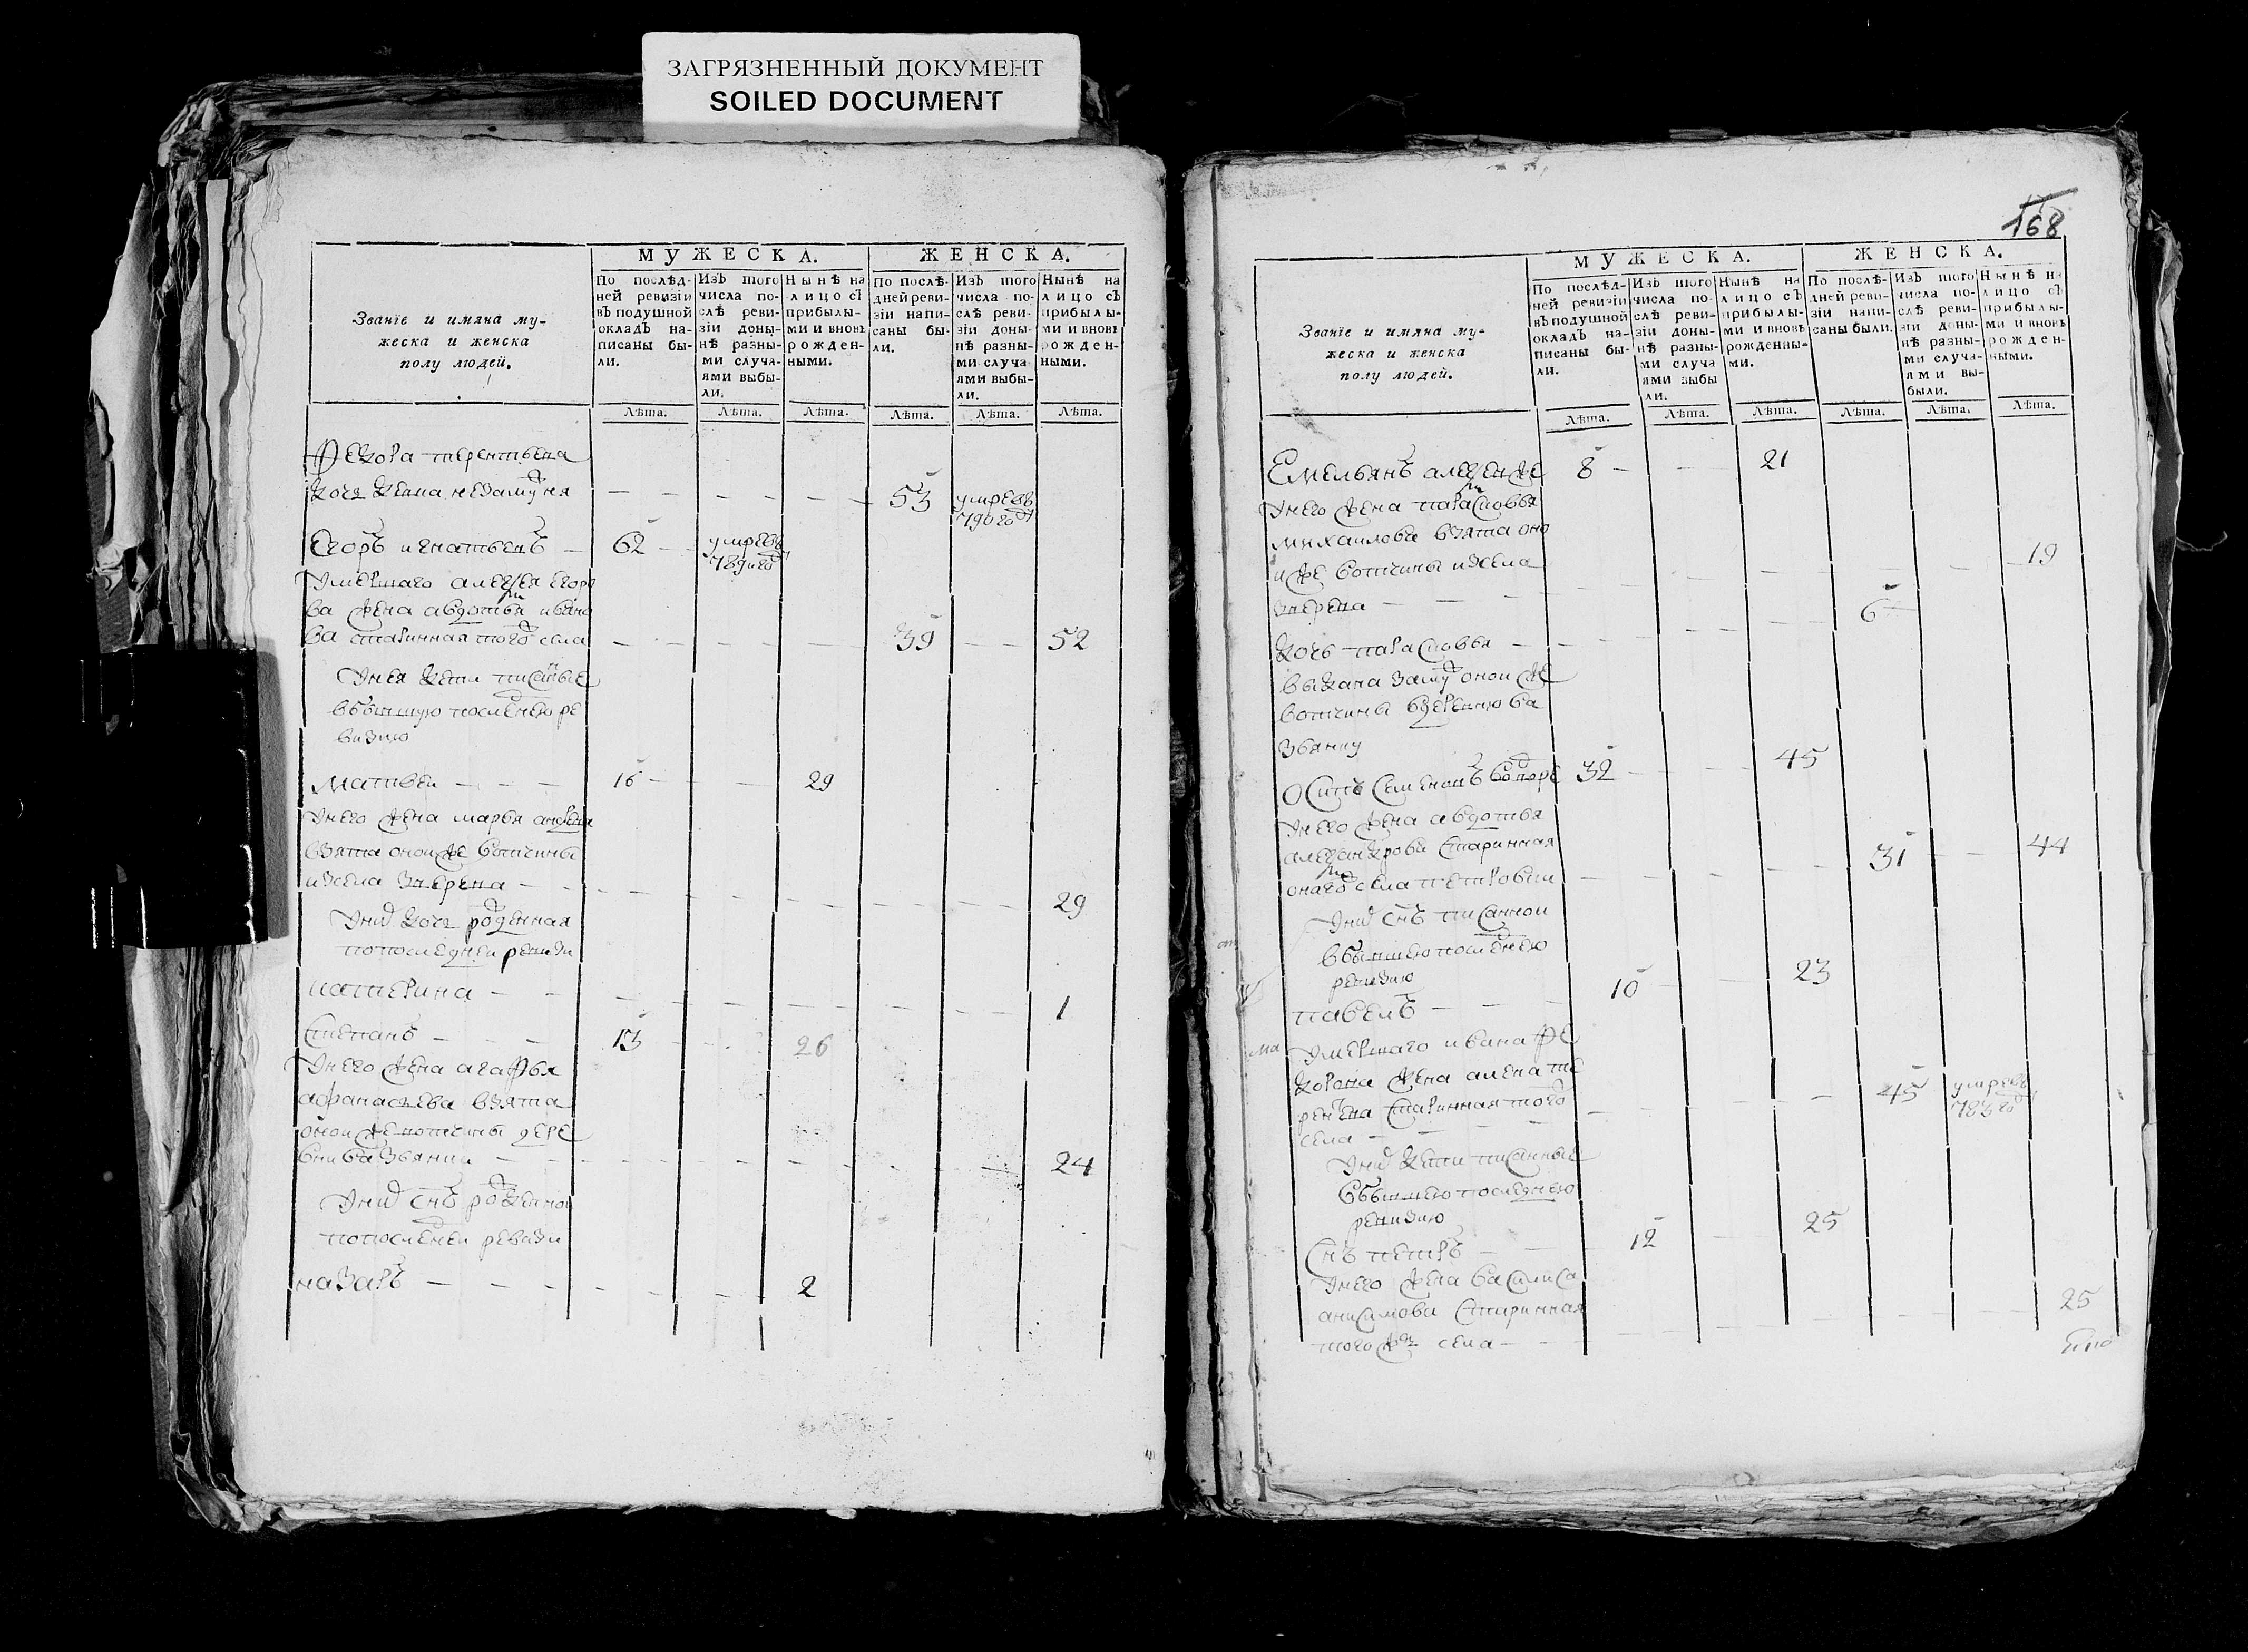 ЗАГРЯЗНЕННЫЙ ДОКУМЕНТ
SOILED DOCUMENT
МУЖЕСКА.
ЖЕНСКА.
Званїе и имяна му-
жеска и женска
полу людей.
По послѣд-
ней ревизіи
въ подушной
окладъ на-
писаны бы-
ли.
Изъ того
числа по-
слѣ реви-
зіи доны-
нѣ разны-
ми случа-
ями выбы-
ли.
Нынѣ на
лицо съ
прибылы-
ми и вновь
рожден-
ными.
По послѣ-
дней реви-
зіи напи-
саны бы-
ли.
Изъ того
числа по-
слѣ реви-
зіи доны-
нѣ разны-
ми случа-
ями выбы-
ли.
Нынѣ на
лицо съ
прибылы-
ми и вновь
рожден-
ными.
Лѣта. Лѣта. Лѣта. Лѣта. Лѣта. Лѣта.
Федора терентьева
дочь 53
790 го
Егоръ игнатьевъ 62
789 го
умершаго алексея егоро
ва жена авдотья ивано
ва старинная того села 39 52
унея дети писаные
вбывшую последнею ре
визию
матвеи 16 29
унего жена марья
взята оной же вотчины
изсела
29
уних дочь рожденная
попоследней ревизи
катерина 1
степанъ 13 26
унего жена агафья
афанасьева взята
оной же вотчины дере
вни базвянки 24
уних снъ рожденной
попоследней ревизи
назаръ 2
168
МУЖЕСКА.
ЖЕНСКА.
Званїе и имяна му-
жеска и женска
полу людей.
По послѣд-
ней ревизіи
въ подушной
окладъ на-
писаны бы-
ли.
Изъ того
числа по-
слѣ реви-
зіи доны-
нѣ разны-
ми случа
ями выбы
ли.
Нынѣ на
лицо съ
прибылы-
ми и вновь
рожденны-
ми.
По послѣ-
дней реви-
зіи напи-
саны были.
Изъ того
числа по-
слѣ реви-
зіи доны-
нѣ разны-
ми случа-
ями вы-
были.
Нынѣ на
лицо съ
прибылы-
ми и вновь
рожден-
ными.
Лѣта. Лѣта. Лѣта. Лѣта. Лѣта. Лѣта.
Емельянъ 8 21
унего жена парасковья
михаилова взята оно
и же вотчины изсела
19
дочь парасковья 6
выдана замуж оной же
вотчины вдеревню ба
звянку
Осипъ Семеновъ 32 45
унего жена авдотья
александрова старинная
онаго села 31 44
уних снъ писанной
вбывшею последнею
ревизию
павелъ 10 23
умершаго ивана фе
дорова жена алена те
рентьева старинная того
села 45
уних дети писанные
вбывшею последнею
ревизию
Снъ петръ 12 25
унего жена василиса
анисимова старинная
того ж села 25